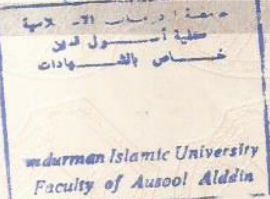 جامعة أم درمان الاسلامية
كلية أصول الدين
خاص بالشهادات
Omdurman Islamic University
Faculty of Ausool Alddin